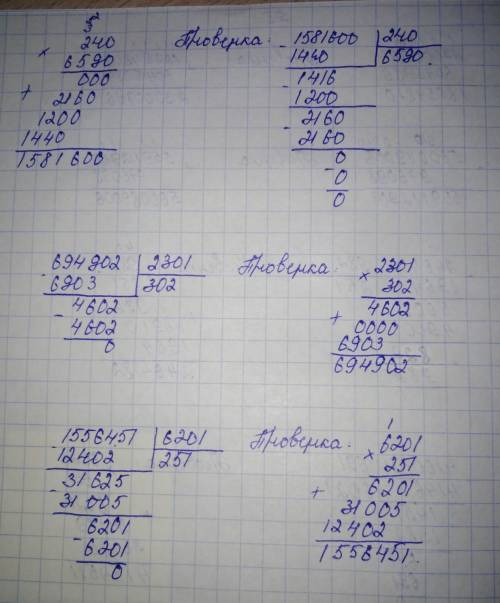 240
× 6590
000
+ 2160
1200
1440
1581600
Проверка:
- 1581600 | 240
1440 | 6590
- 1416
1200
- 2160
2160
0
- 0
0
- 694902 | 2301
6903 | 302
- 4602
4602
0
Проверка:
× 2301
302
+ 4602
0000
6903
694902
- 1556451 | 6201
12402 | 251
- 31625
31005
- 6201
6201
0
Проверка:
1
× 6201
251
+ 6201
31005
12402
1556451